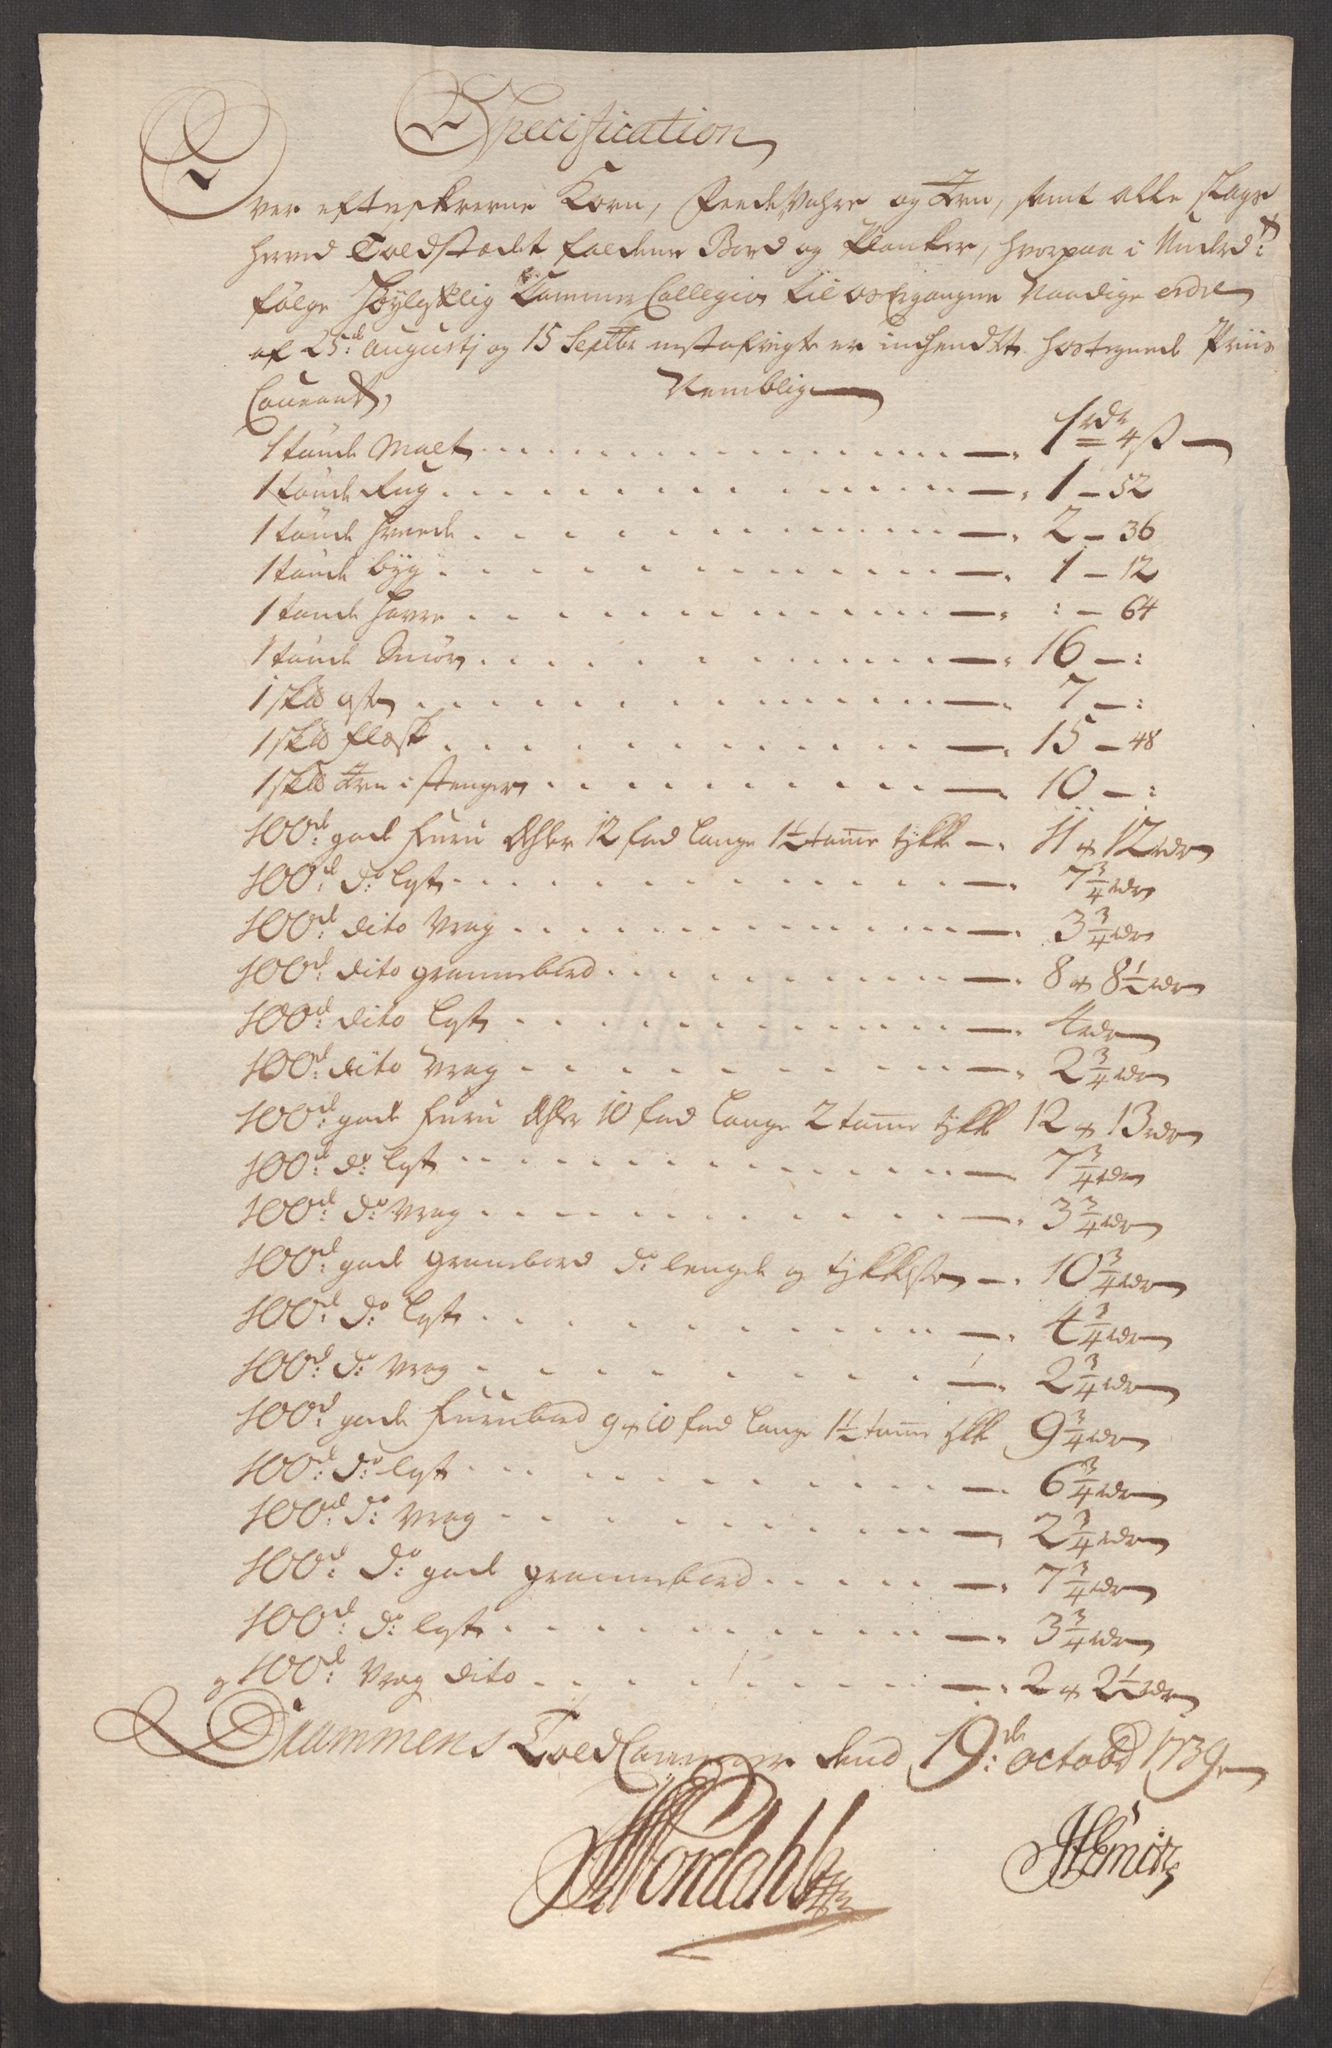 Specification
Over efterskrevne Korn, Feede Vahre og Jern, samt alle slags
herved Toldstædet faldene Bord og Planker, hvorpaa i Underd:
følge Høylovlig Cammer Collegios til os Ergangne Naadige ordre
af 25de Augustj og 15 Septbr nestafvigte er indsendt hostegnede Priis
Courant, Nemblig
1 tønde Malt - - - 1 rdr 4 ß
1 tønde Rug - - - 1 - 52
1 tønde Hvede - - - 2 - 36
1 tønde byg - - - 1 - 12
1 tønde Havre - - - : - 64
1 tønde Smør - - - 16 - :
1 sk℔ ost - - - 7 - :
1 sk℔ flesk - - - 15 - 48
1 sk℔ Jern i stenger - - - 10 - :
100d: gode Furu dehler 12 fod lange 1½ tomme tykke - 11 a 12 rdr
100d: do: lgst - - - 7¾ rdr
100d: dito Vrag - - - 3¾ rdr
100d: dito grannebord - - - 8 a 8½ rdr
100d: dito lgst - - - 4 rdr
100d: dito Vrag - - - 2¾ rdr
100d: gode Furu dehler 10 fod lange 2 tomme tykk 12 a 13 rdr
100d: do: lgst - - - 7¾ rdr
100d: do: Vrag - - - 3¾ rdr
100d: gode granebord do: lengde og tykkelse - 10¾ rdr
100d: do: lgst - - - 4¾ rdr
100d: do: Vrag - - - 2¾ rdr
100d: gode Furubord 9 a 10 fod lange 1½ tomme tykk 9¾ rdr
100d: do: lgst - - - 6¾ rdr
100d: do: Vrag - - - 2¾ rdr
100d: do: gode grannebord - - - 7¾ rdr
100d: do: lgst - - - 3¾ rdr
og 100d: Vrag dito - - - 2 a 2½ rdr
Drammens Told Cammer dend 19de: octobr 1739
Wordahl